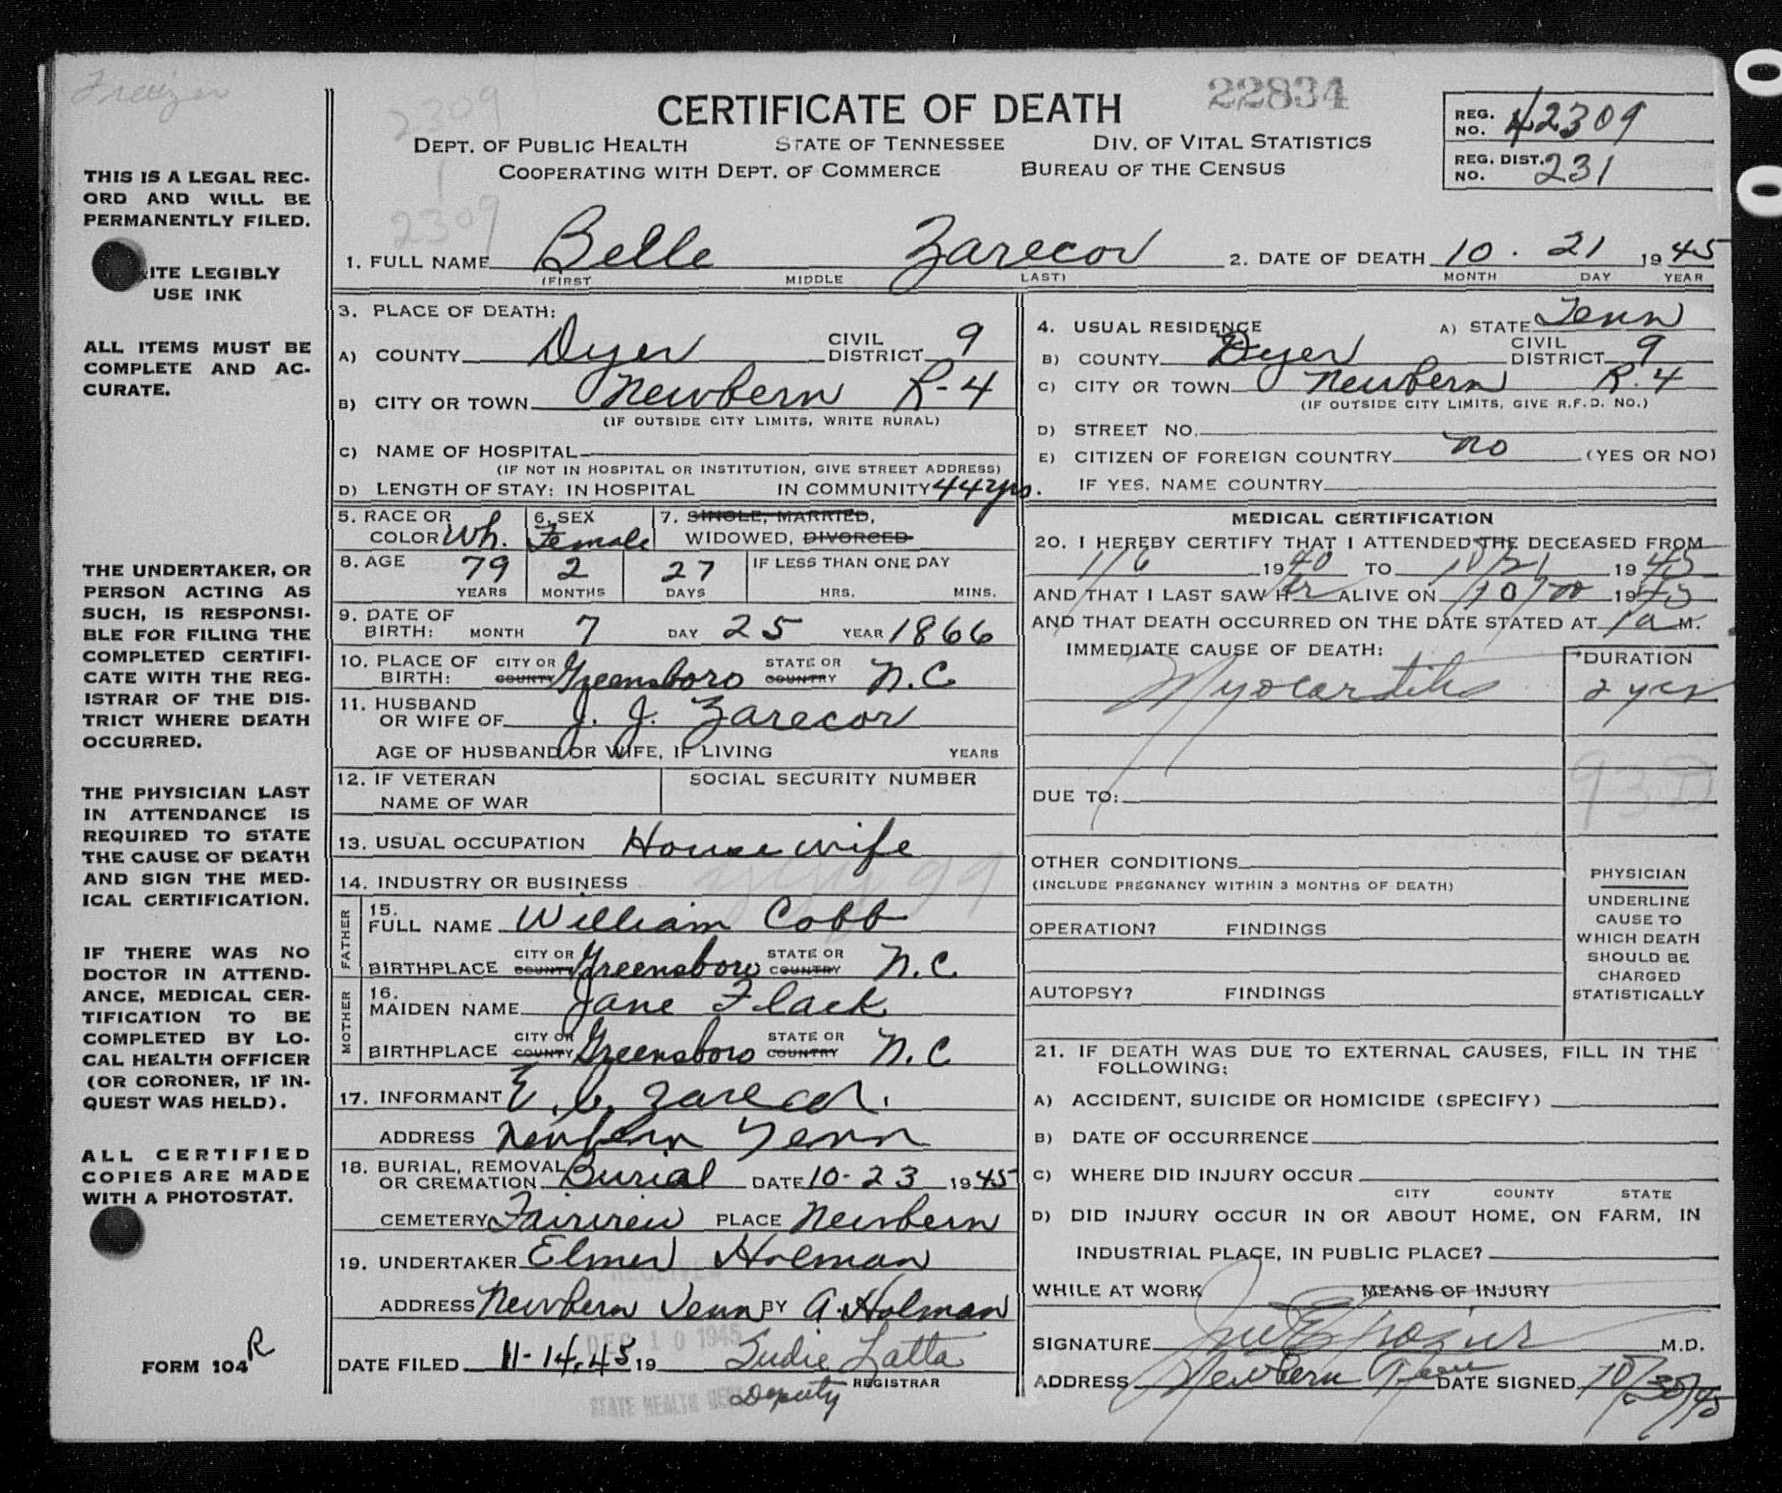 Freizer
THIS IS A LEGAL REC-
ORD AND WILL BE
PERMANENTLY FILED.
ITE LEGIBLY
USE INK
ALL ITEMS MUST BE
COMPLETE AND AC-
CURATE.
THE UNDERTAKER, OR
PERSON ACTING AS
SUCH, IS RESPONSI-
BLE FOR FILING THE
COMPLETED CERTIFI-
CATE WITH THE REG-
ISTRAR OF THE DIS-
TRICT WHERE DEATH
OCCURRED.
THE PHYSICIAN LAST
IN ATTENDANCE IS
REQUIRED TO STATE
THE CAUSE OF DEATH
AND SIGN THE MED-
ICAL CERTIFICATION.
IF THERE WAS NO
DOCTOR IN ATTEND-
ANCE, MEDICAL CER-
TIFICATION TO BE
COMPLETED BY LO-
CAL HEALTH OFFICER
(OR CORONER, IF IN-
QUEST WAS HELD).
ALL CERTIFIED
COPIES ARE MADE
WITH A PHOTOSTAT.
FORM 104 R
2309
CERTIFICATE OF DEATH 22834
DEPT. OF PUBLIC HEALTH STATE OF TENNESSEE DIV. OF VITAL STATISTICS
COOPERATING WITH DEPT. OF COMMERCE BUREAU OF THE CENSUS
REG. NO. 42309
REG. DIST. NO. 231
2309
1. FULL NAME Belle Zarecor 2. DATE OF DEATH 10 . 21 1945
(FIRST MIDDLE LAST) MONTH DAY YEAR
3. PLACE OF DEATH:
A) COUNTY Dyer CIVIL DISTRICT 9
B) CITY OR TOWN Newbern R-4
(IF OUTSIDE CITY LIMITS, WRITE RURAL)
C) NAME OF HOSPITAL
(IF NOT IN HOSPITAL OR INSTITUTION, GIVE STREET ADDRESS)
D) LENGTH OF STAY: IN HOSPITAL IN COMMUNITY 44 yrs.
4. USUAL RESIDENCE A) STATE Tenn
B) COUNTY Dyer CIVIL DISTRICT 9
C) CITY OR TOWN Newbern R. 4
(IF OUTSIDE CITY LIMITS, GIVE R.F.D. NO.)
D) STREET NO.
E) CITIZEN OF FOREIGN COUNTRY no (YES OR NO)
IF YES, NAME COUNTRY
5. RACE OR COLOR Wh. 6. SEX Female 7. SINGLE, MARRIED, WIDOWED, DIVORCED
8. AGE 79 2 27 IF LESS THAN ONE DAY
YEARS MONTHS DAYS HRS. MINS.
9. DATE OF BIRTH: MONTH 7 DAY 25 YEAR 1866
10. PLACE OF BIRTH: CITY OR COUNTY Greensboro STATE OR COUNTRY N.C
11. HUSBAND OR WIFE OF J. J. Zarecor
AGE OF HUSBAND OR WIFE, IF LIVING YEARS
12. IF VETERAN SOCIAL SECURITY NUMBER
NAME OF WAR
13. USUAL OCCUPATION House wife
14. INDUSTRY OR BUSINESS
FATHER
15. FULL NAME William Cobb
BIRTHPLACE CITY OR COUNTY Greensboro STATE OR COUNTRY N.C.
MOTHER
16. MAIDEN NAME Jane Flack
BIRTHPLACE CITY OR COUNTY Greensboro STATE OR COUNTRY N.C
17. INFORMANT E. C. Zarecor.
ADDRESS Newbern Tenn
18. BURIAL, REMOVAL OR CREMATION Burial DATE 10-23 1945
CEMETERY Fairview PLACE Newbern
19. UNDERTAKER Elmer Holman
RECEIVED
ADDRESS Newbern Tenn BY A. Holman
DEC 10 1945
DATE FILED 11-14.45 19 Sudie Latta
REGISTRAR
STATE HEALTH DEPT Deputy
MEDICAL CERTIFICATION
20. I HEREBY CERTIFY THAT I ATTENDED THE DECEASED FROM
1/6 1940 TO 10/21 1945
AND THAT I LAST SAW Her ALIVE ON 10/20 1945
AND THAT DEATH OCCURRED ON THE DATE STATED AT 1 a M.
IMMEDIATE CAUSE OF DEATH: DURATION
Myocarditis 2 yrs
93D
DUE TO:
OTHER CONDITIONS
(INCLUDE PREGNANCY WITHIN 3 MONTHS OF DEATH)
OPERATION? FINDINGS
AUTOPSY? FINDINGS
PHYSICIAN
UNDERLINE
CAUSE TO
WHICH DEATH
SHOULD BE
CHARGED
STATISTICALLY
21. IF DEATH WAS DUE TO EXTERNAL CAUSES, FILL IN THE
FOLLOWING:
A) ACCIDENT, SUICIDE OR HOMICIDE (SPECIFY)
B) DATE OF OCCURRENCE
C) WHERE DID INJURY OCCUR
CITY COUNTY STATE
D) DID INJURY OCCUR IN OR ABOUT HOME, ON FARM, IN
INDUSTRIAL PLACE, IN PUBLIC PLACE?
WHILE AT WORK MEANS OF INJURY
SIGNATURE M.D.
ADDRESS Newbern Tenn DATE SIGNED 10/30/45